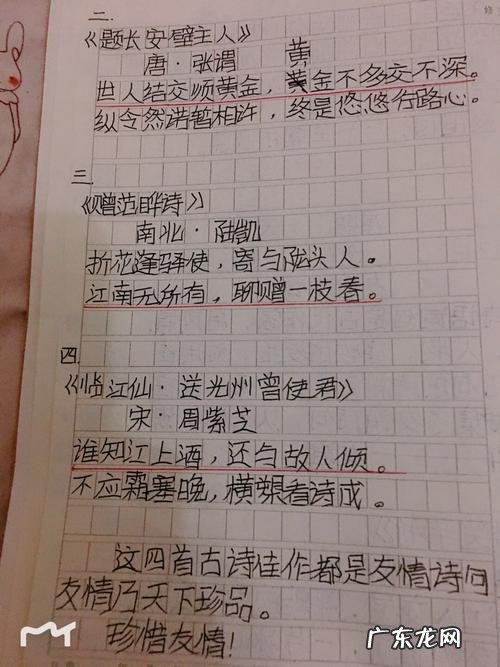 二.
《题长安壁主人》
唐·张谓 黄
世人结交须黄金，黄金不多交不深。
纵令然诺暂相许，终是悠悠行路心。
三.
《赠范晔诗》
南北·陆凯
折花逢驿使，寄与陇头人。
江南无所有，聊赠一枝春。
四.
《临江仙·送光州曾使君》
宋·周紫芝
谁知江上酒，还与故人倾。
不应霜塞晚，横槊看诗成。
这四首古诗佳作都是友情诗词
友情乃天下珍品。
珍惜友情！
广东龙网